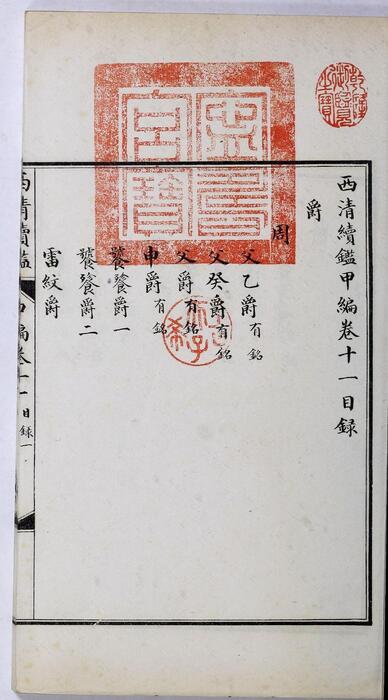 西清續鑑甲編卷十一目録
爵
周
父乙爵有銘
父癸爵有銘
父爵有銘
申爵有銘
饕餮爵一
饕餮爵二
雷紋爵
西清續鑑 甲編卷十一目録一
乾隆御覽之寶
古希天子